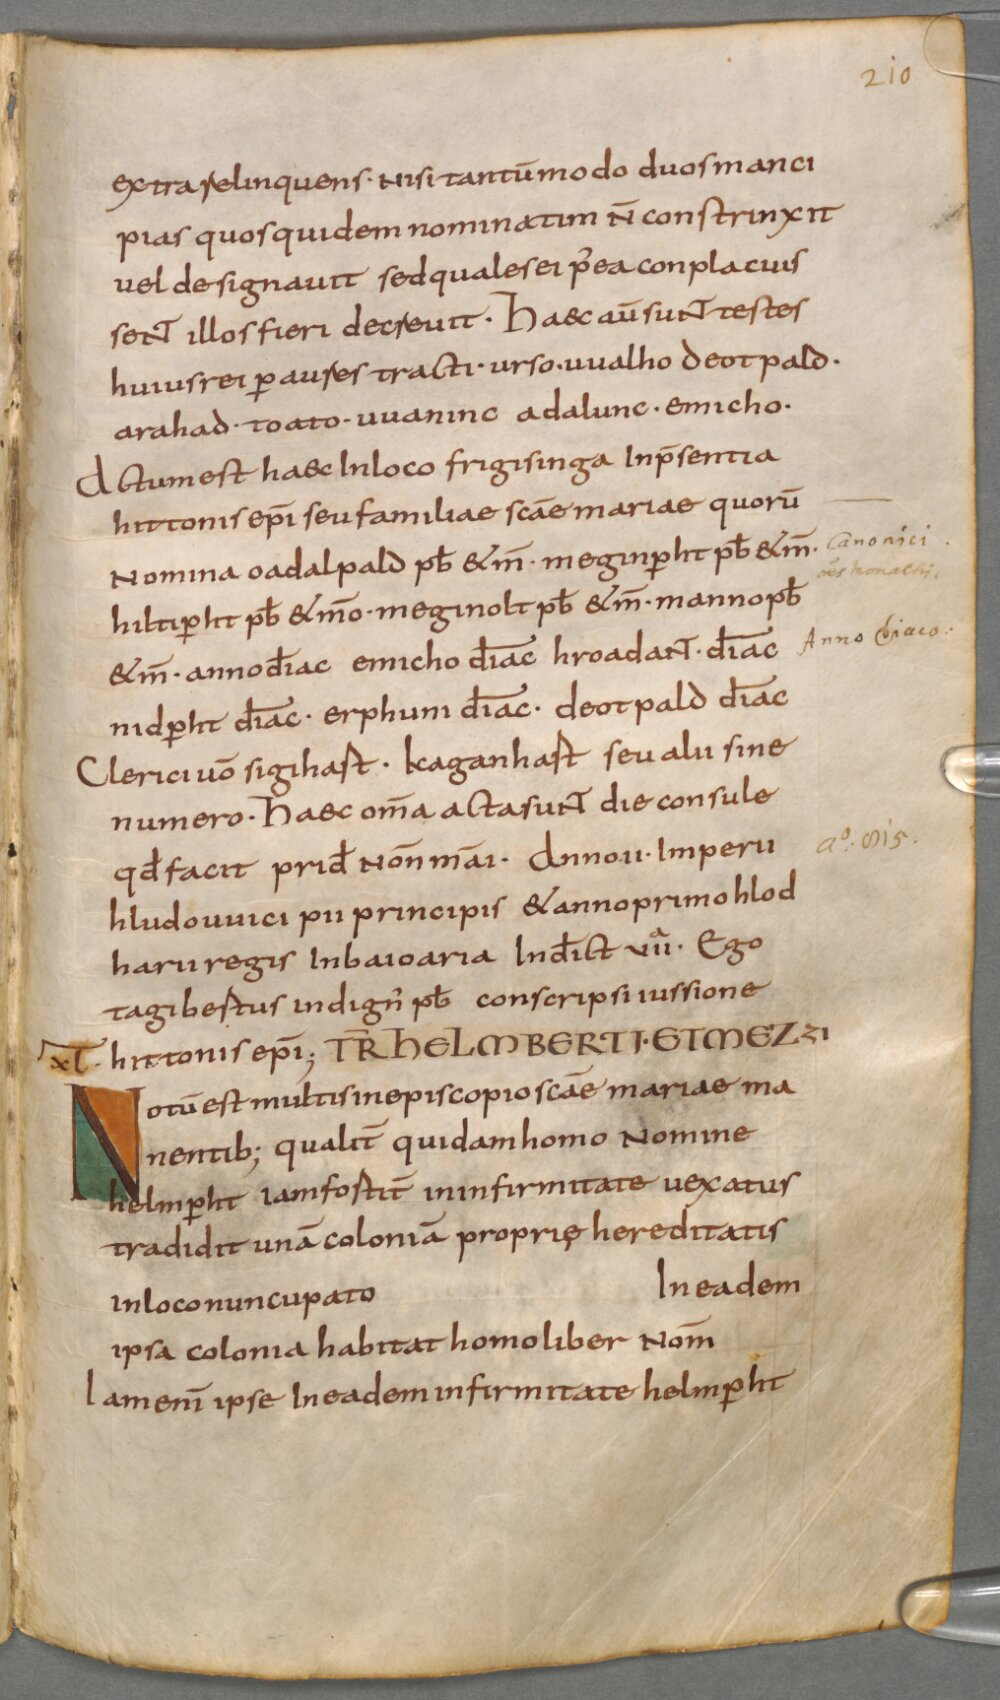 210
extra relinquens · nisi tantū modo duos manci
pias quos quidem nominatim n̄ constrinxit
uel designauit sed quales ei p̄ ea conplacuis
sent illos fieri decreuit · Haec aū sunt testes
huius rei ꝑ aures tracti · urso · uualho deotpald ·
arahad · toato · uuaninc adalunc · emicho ·
Actum est haec In loco frigisinga In p̄sentia
hittonis ep̄i seu familiae sc̄ae mariae quorū
Nomina oadalpald pb̄ & m̄ · meginꝑht pb̄ & m̄ ·
Canonici
hiltiꝑht pb̄ & m̄o · meginolt pb̄ & m̄ · manno pb̄
& m̄ · anno d̄iac emicho d̄iac hroadant · d̄iac
Anno Diaco:
nidꝑht d̄iac · erphuni d̄iac · deotpald d̄iac
Clerici uō sigihast · kaganhast seu alii sine
numero · Haec om̄a acta sunt die consule
qd̄ facit prid̄ Non̄ mai · Anno II · Imperii
aº: 815 .
hludouuici pii principis & anno primo hlod
harii regis In baioaria Ind̄ict VIIᵃ · Ego
tagibestus indign̄ pb̄ conscripsi iussione
XL · hittonis ep̄i; TR̄ HELMBERTI · ET MEZZI
Notū est multis in episcopio sc̄ae mariae ma
nentib; qualit̄ quidam homo Nomine
helmꝑht iam fostit̄ in infirmitate uexatus
tradidit unā coloniā proprię hereditatis
in loco nuncupato In eadem
ipsa colonia habitat homo liber Nom̄
lamenī ipse In eadem infirmitate helmꝑht